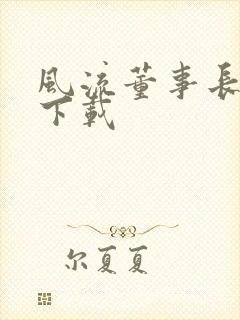 風流董事長
下載
尔夏夏